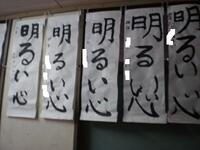 明るい心
明るい心
明るい心
明るい心
明るい心